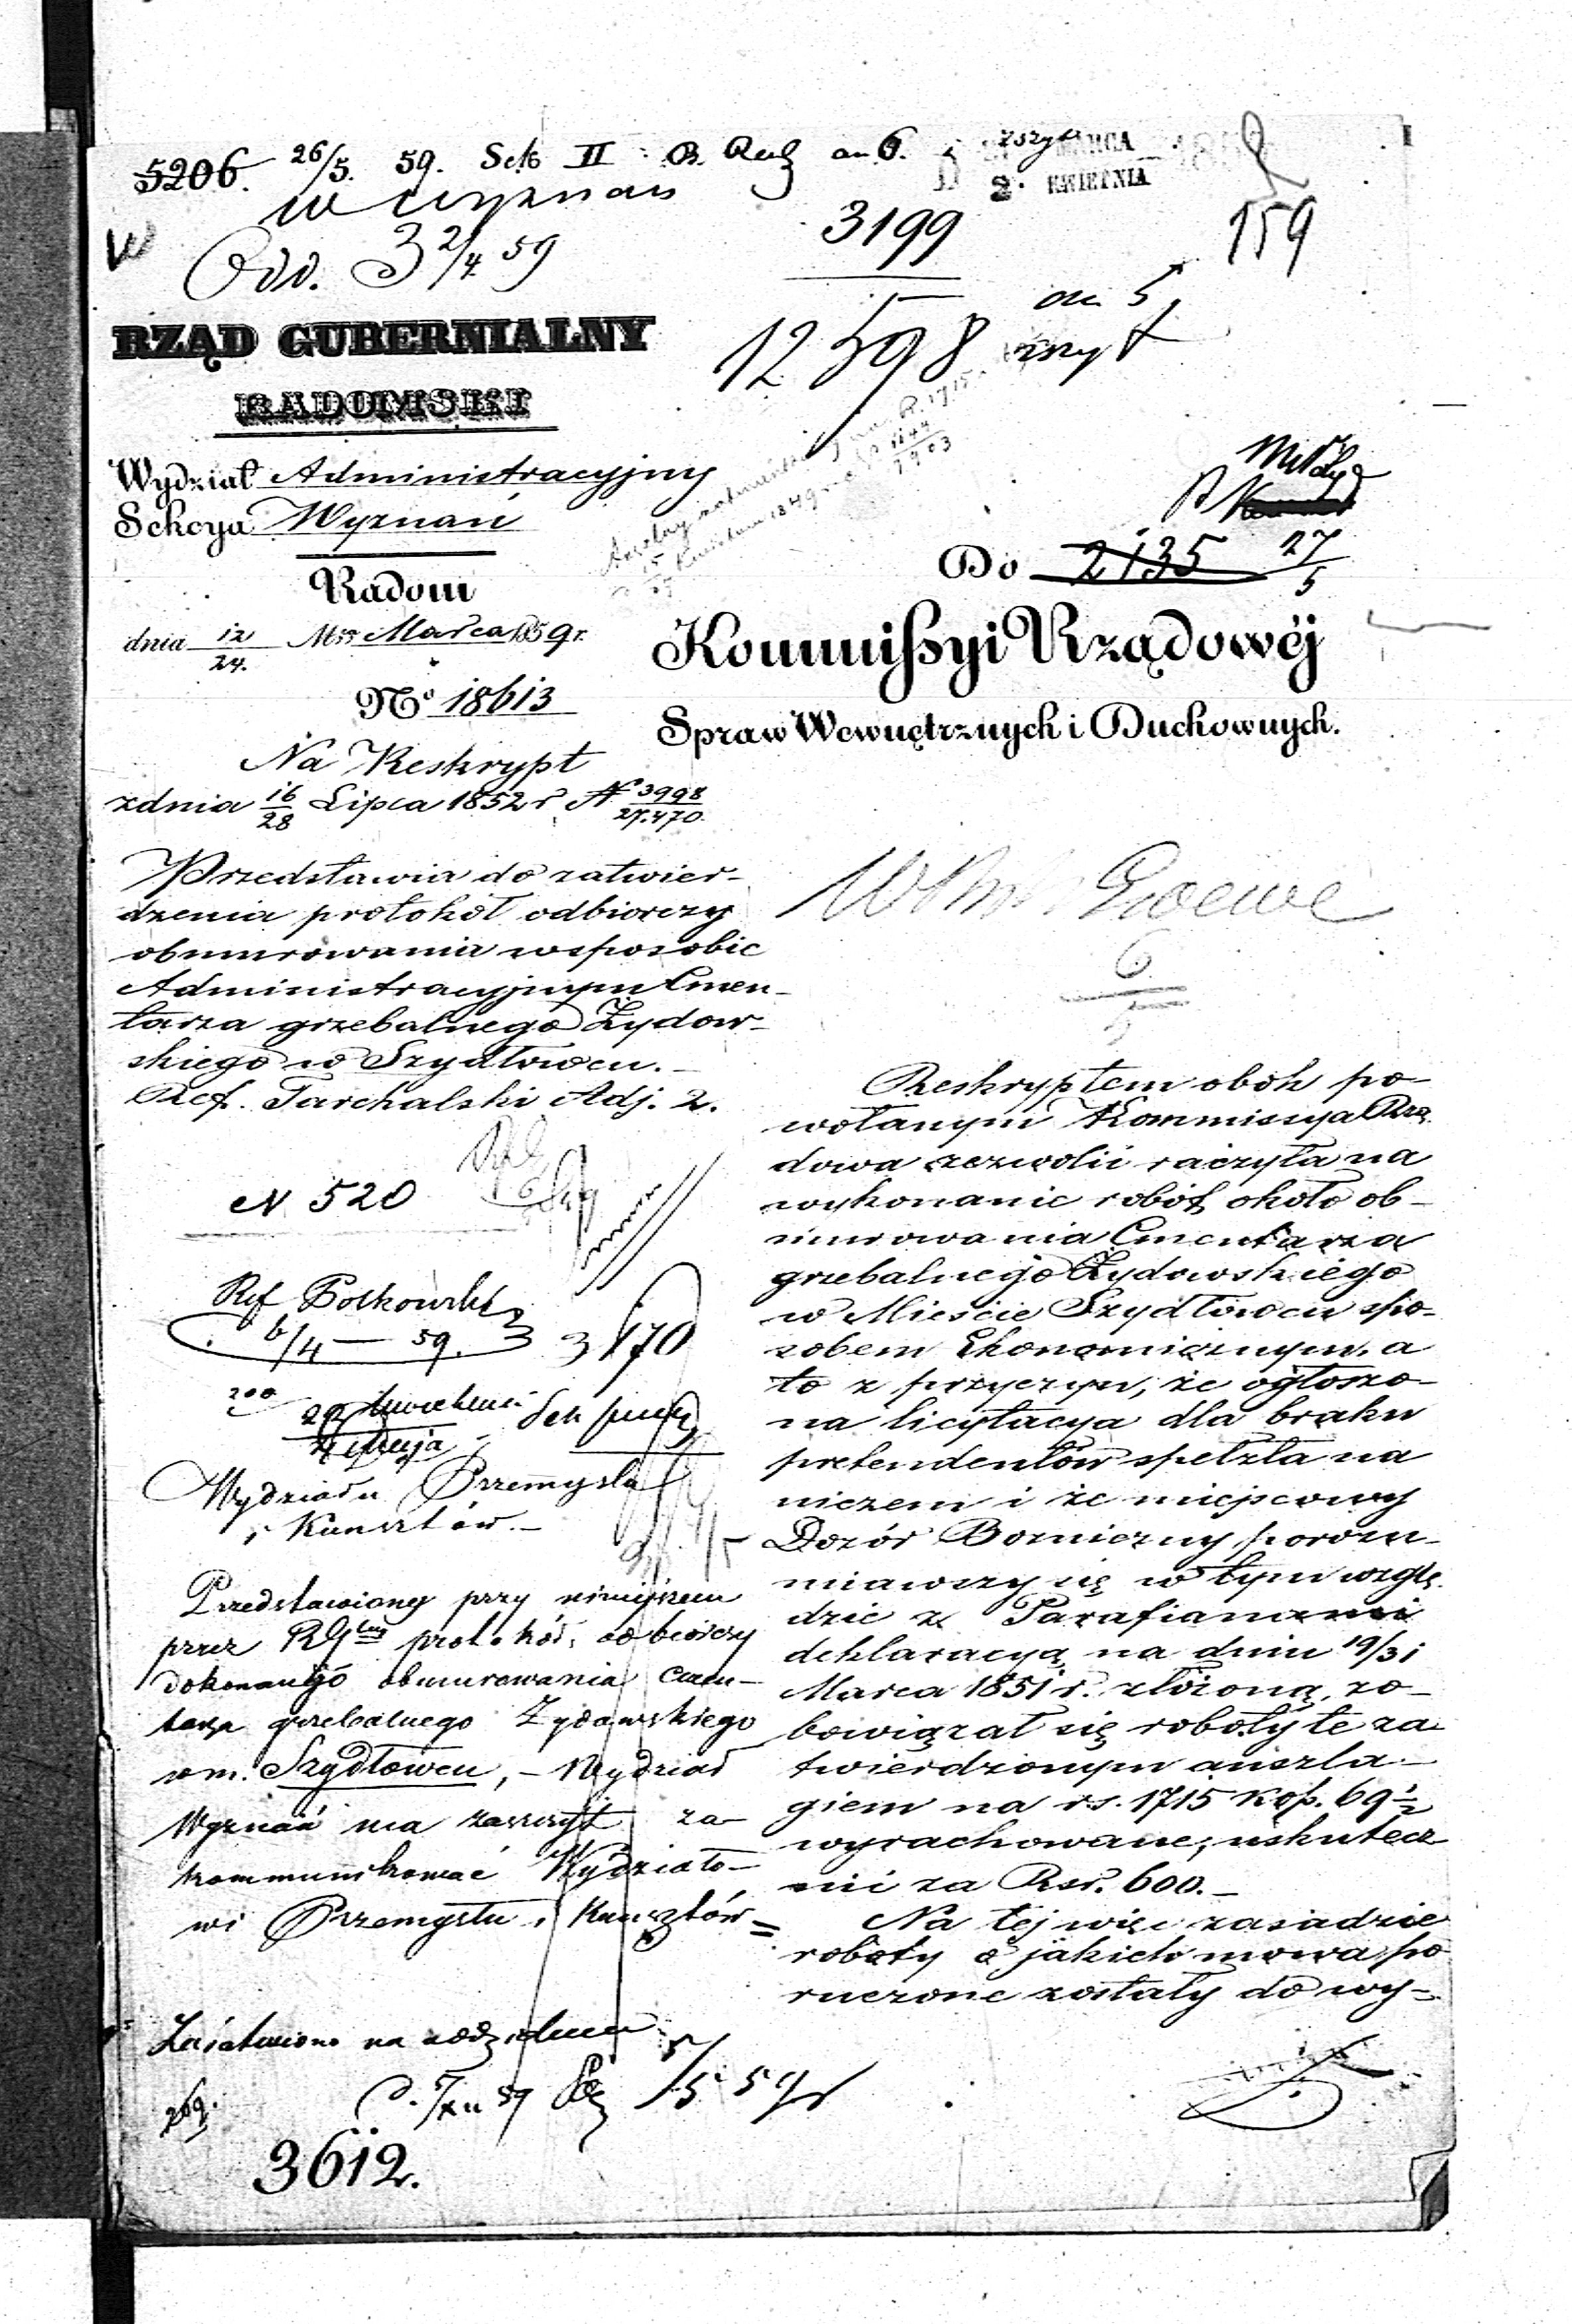 5206. 26/5. 59. Sek II
W wyznań
Odd. 3 2/4 59
MARCA
2. KWIETNIA
3199
159
12598
an 5
zszyt
RZĄD GUBERNIALNY
RADOMSKI
Wydział Administracyjny
Sekcya Wyznań
Radom
dnia 12/24. Mca Marca 1859 r.
No 18613
Na Reskrypt
z dnia 16/28 Lipca 1852 r N 3998/27.470.
Przedstawia do zatwier-
dzenia protokół odbiorczy
obmurowania w sposobie
Administracyjnym Cmen-
tarza grzebalnego Żydow-
skiego w Szydłowcu. –
Ref. Tarchalski Adj. 2.
N 520
Ref Potkowski
6/4 – 59.
3170
Wydziału Przemysłu
i Kunsztów. –
Przedstawiony przy niniejszem
przez RGlny protokół odbiorczy
dokonanego obmurowania Cmen-
tarza grzebalnego Żydowskiego
w m. Szydłowcu, – Wydział
Wyznań ma zaszczyt za-
kommunikować Wydziało-
wi Przemysłu i Kunsztów =
Załatwiono na
3612.
Do 2135 27/5
Kommissyi Rządowéj
Spraw Wewnętrznych i Duchownych.
6/5
Reskryptem obok po-
wołanym Kommissya Rzą-
dowa zezwolić raczyła na
wykonanie robót około ob-
murowania Cmentarza
grzebalnego Żydowskiego
w Mieście Szydłowcu spo-
sobem Ekonomicznym, a
to z przyczyn, że ogłoszo-
na licytacya dla braku
pretendentów spełzła na
niczem i że miejscowy
Dozór Bożniczny porozu-
miawszy się w tym wzglę-
dzie z Parafianami
deklaracyą na dniu 19/31
Marca 1851 r. złożoną, zo-
bowiązał się roboty te za-
twierdzonym anszla-
giem na rs. 1715 kop. 69 1/2
wyrachowane, uskutecz-
nić za Rsr. 600. –
Na tej więc zasadzie
roboty o jakich mowa po-
ruczone zostały do wy-